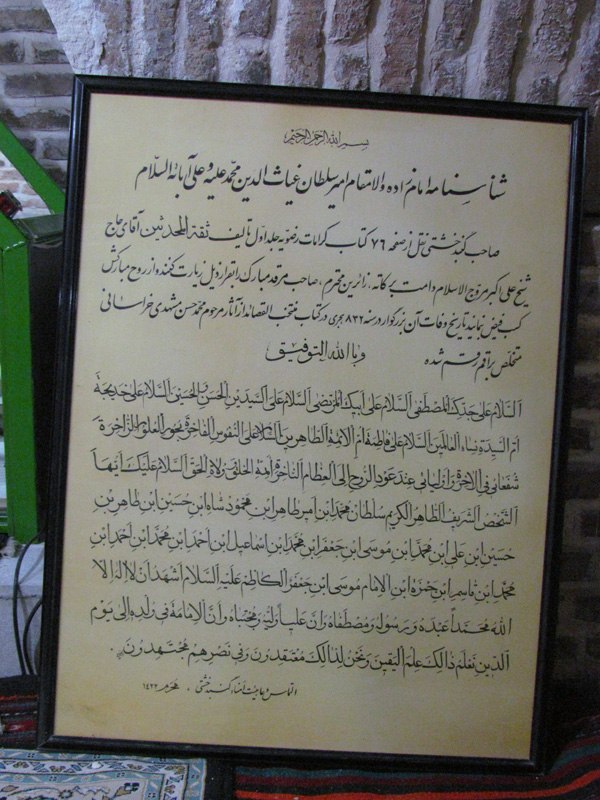 بسم الله الرحمن الرحیم
شناسنامه امامزاده والامقام امیر سلطان غیاث الدین محمد علیه و علی آبائه السلام
صاحب گنبد خشتی نقل از صفحه ۷۶ کتاب کرامات رضویه جلد اول تالیف ثقة المحدثین آقای حاج
شیخ علی اکبر مروج الاسلام دامت برکاته، زائرین محترم، صاحب مرقد مبارک را بقرار ذیل زیارت کنند و از روح مبارکش
کسب فیض نمایند تاریخ وفات آن بزرگوار در سنه ۸۳۲ هجری در کتاب منتخب القصائد از آثار مرحوم محمد حسن مشهدی خراسانی
متخلص براقم رقم شده وبالله التوفیق
السلام علی جدک المصطفی السلام علی ابیک المرتضی السلام علی السیدین الحسن والحسین السلام علی خدیجة
ام السیدة نساء العالمین السلام علی فاطمة ام الائمة الطاهرین السلام علی النفوس الفاخرة بحور العلوم الزاخرة
شفعائی فی الاخرة واولیائی عند عود الروح الی العظام الناخرة ائمة الخلق وولاة الحق السلام علیک ایها
الشخص الشریف الطاهر الکریم سلطان محمد ابن امیر طاهر ابن محمود شاه ابن حسین ابن طاهر بن
حسین ابن علی ابن محمد ابن موسی ابن جعفر ابن محمد ابن اسماعیل ابن احمد ابن محمد ابن احمد ابن
محمد ابن قاسم ابن حمزه ابن الامام موسی ابن جعفر الکاظم علیه السلام اشهد ان لا اله الا
الله محمداً عبده و رسوله و مصطفاه وان علیاً ولیه و مجتباه وان الامامة فی ولده الی یوم
الدین نعلم ذالک علم الیقین ونحن لذالک معتقدون وفی نصرهم مجتهدون
التماس دعا هیئت امناء گنبد خشتی . محرم ۱۴۲۲